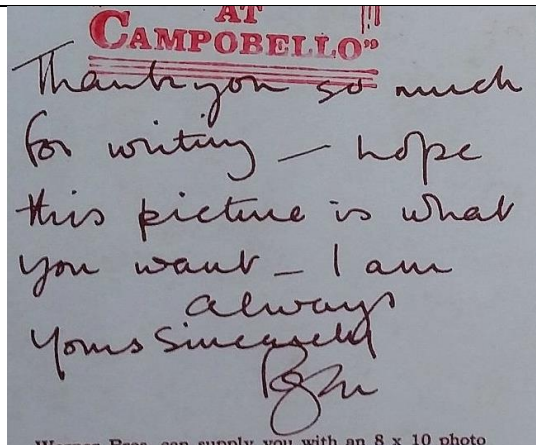 AT
CAMPOBELLO"
Thank you so much
for writing — hope
this picture is what
you want — I am
always
Yours Sincerely
Warner Bros. can supply you with an 8 x 10 photo